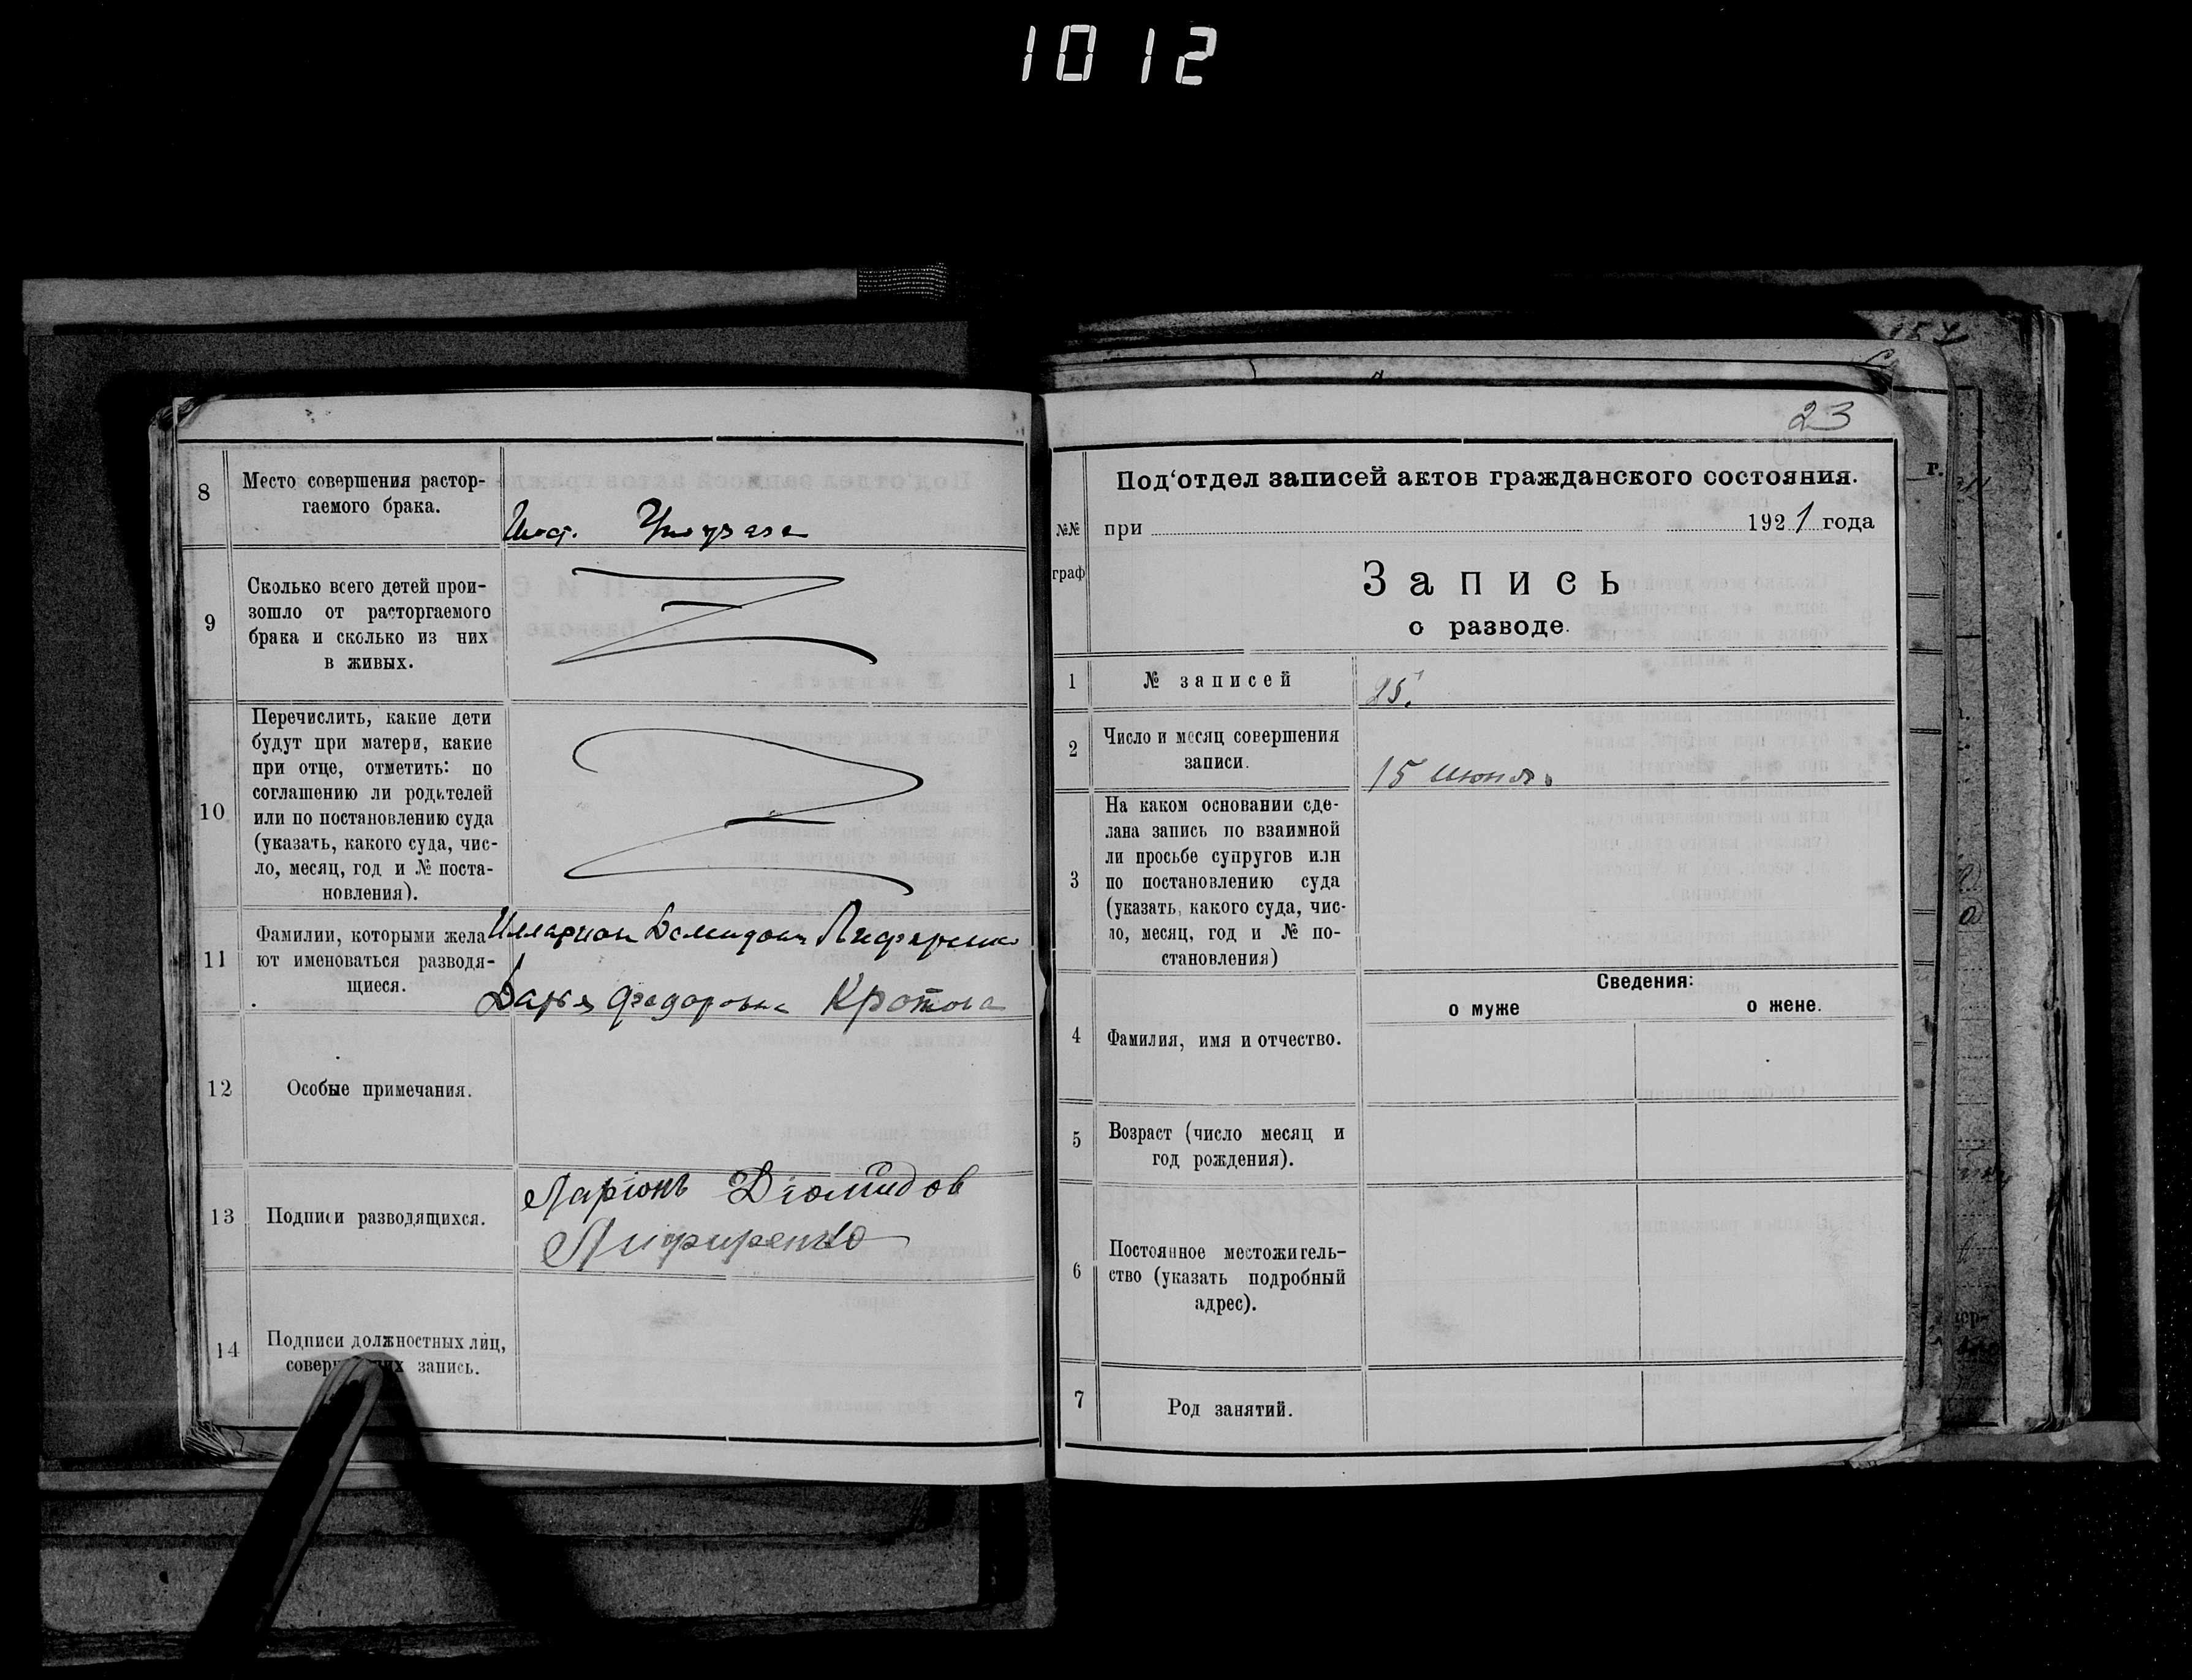 1012
8
Место совершения растор-
гаемого брака.
9
Сколько всего детей прои-
зошло от расторгаемого
брака и сколько из них
в живых.
10
Перечислить, какие дети
будут при матери, какие
при отце, отметить: по
соглашению ли родителей
или по постановлению суда
(указать, какого суда, чис-
ло, месяц, год и № поста-
новления).
11
Фамилии, которыми жела
ют именоваться разводя-
щиеся.
Илларион
Дарья Федоровна Кротова
12
Особые примечания.
13
Подписи разводящихся.
Ларіонъ Діомидов
Лифиренко
14
Подписи должностных лиц,
запись.
23
Под‘отдел записей актов гражданского состояния.
при 1921 года
№№
граф
Запись
о разводе.
1
№ записей
25.
2
Число и месяц совершения
записи.
15 июня.
3
На каком основании сде-
лана запись по взаимной
ли просьбе супругов или
по постановлению суда
(указать, какого суда, чис-
ло, месяц, год и № по-
становления)
Сведения:
о муже о жене.
4
Фамилия, имя и отчество.
5
Возраст (число месяц и
год рождения).
6
Постоянное местожитель-
ство (указать подробный
адрес).
7
Род занятий.
г.